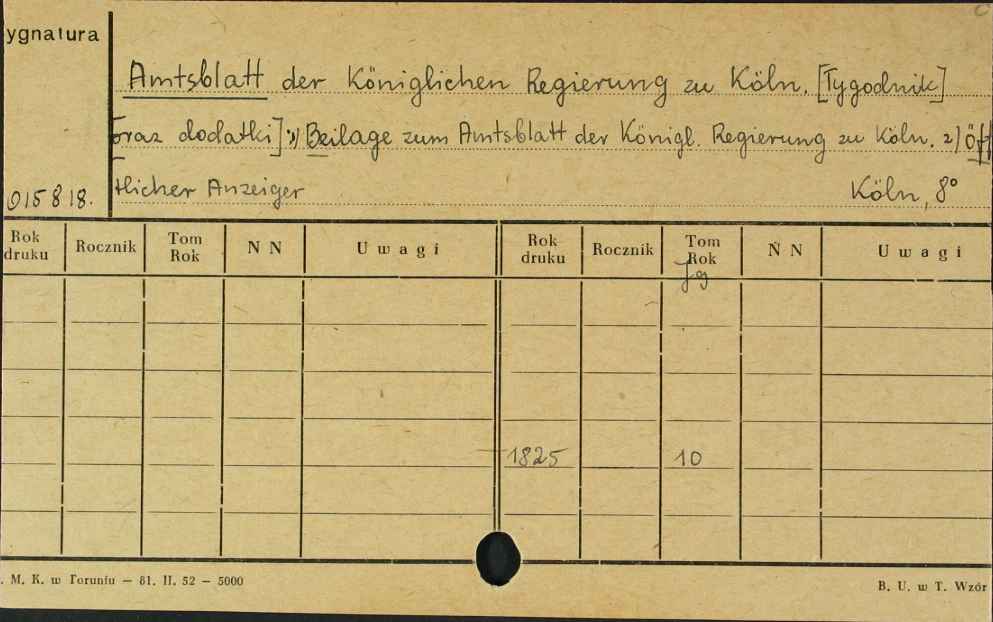 ygnatura
Amtsblatt der Königlichen Regierung zu Köln. [Tygodnik]
oraz dodatki] 1) Beilage zum Amtsblatt der Königl. Regierung zu Köln. 2) Öff
tlicher Anzeiger Köln, 8°
015818.
Rok druku Rocznik Tom Rok N N Uwagi Rok druku Rocznik Tom Rok N N Uwagi
Jg
1825 10
. M. K. w Toruniu – 81. II. 52 – 5000 B. U. w T. Wzór